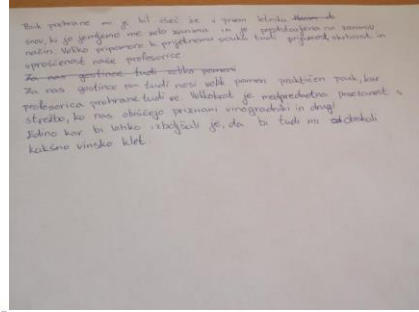 Pouk prehrane mi je bil všeč že v prvem letniku
snov, ki jo jemljemo me zelo zanima in je predstavljena na zanimiv
način. Veliko pripomore k prijetnemu vzdušju tudi prijaznost, in
sproščenost naše profesorice.
Za nas gostince tudi veliko pomeni
Za nas gostince pa tudi nosi velik pomen praktičen pouk, kar
profesorica prehrane tudi ve. Velikokrat je medpredmetna povezanost s
strežbo, ko nas obiščejo priznani vinogradniki in drugi
Edino kar bi lahko izboljšali je, da bi tudi mi obiskali
kakšno vinsko klet.